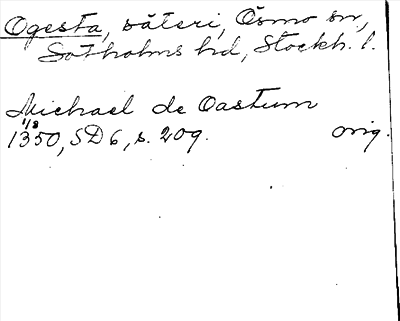 Ogesta, säteri, Ösmo sn,
Sotholms hd, Stockh. l.
Michael de Oastum
1/8
1350, SD 6, s. 209. orig.